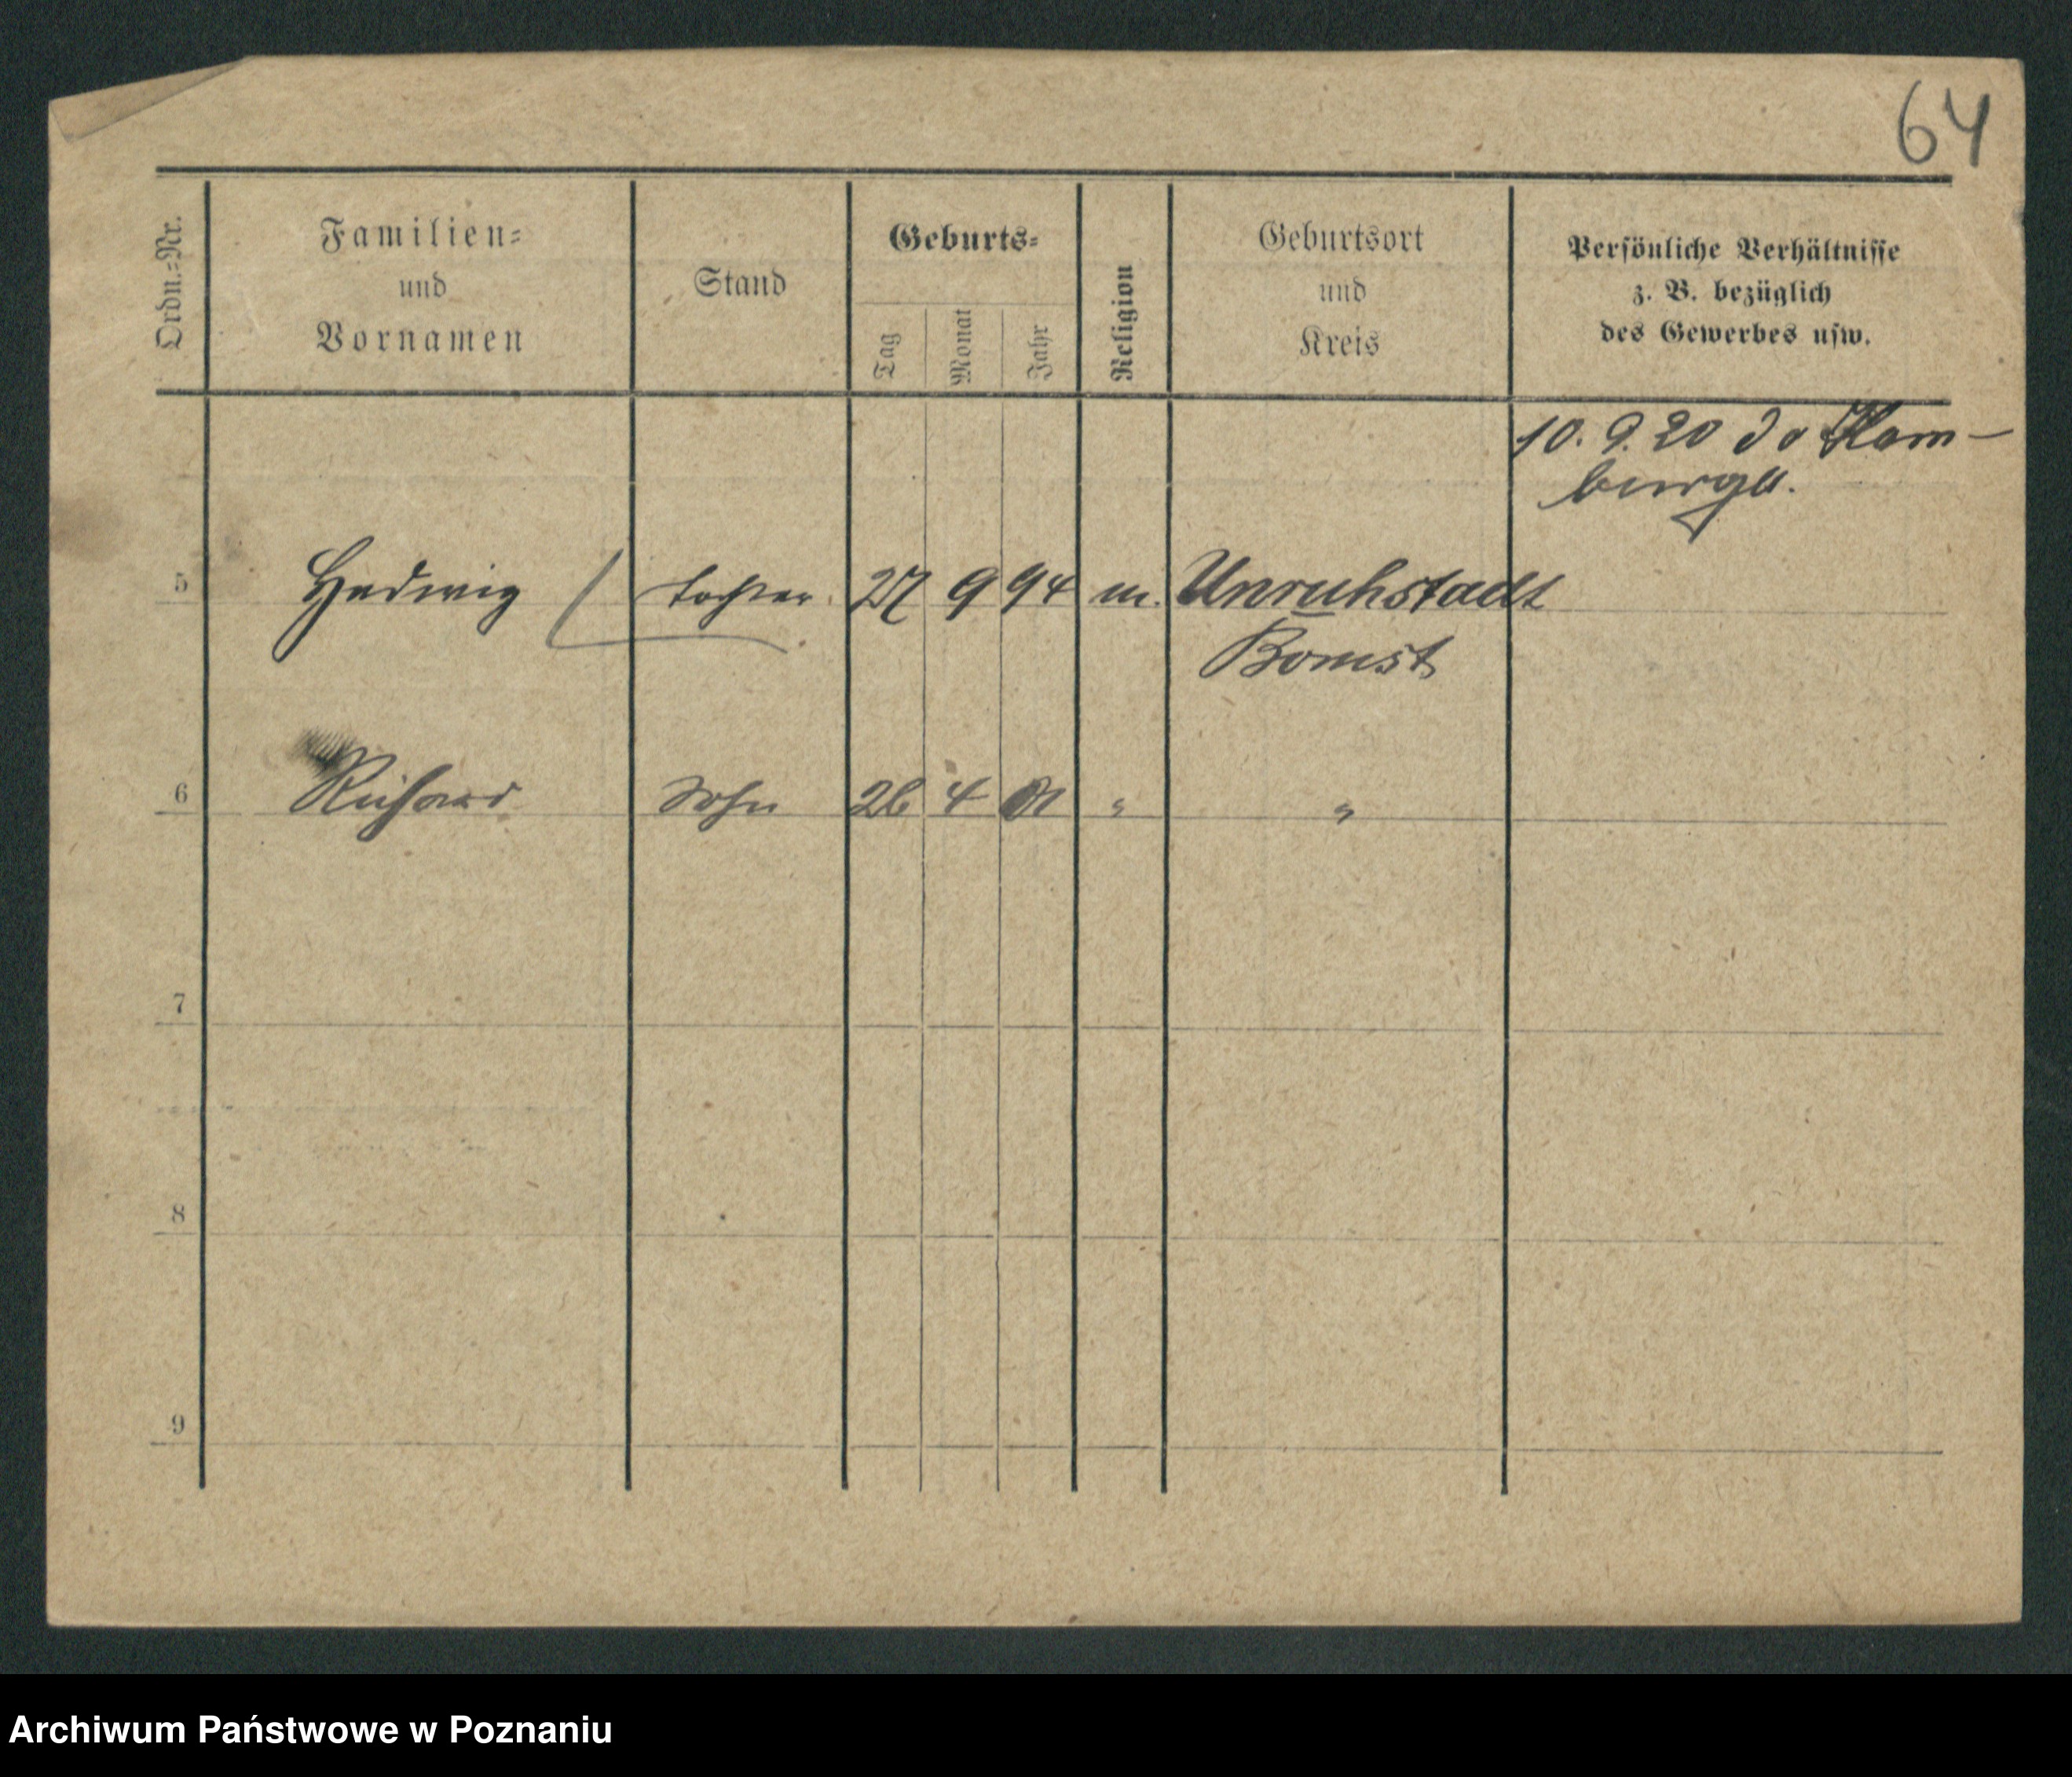 64
Ordn.-Nr.
Familien-
und
Vornamen
Stand
Geburts-
Tag
Monat
Jahr
Religion
Geburtsort
und
Kreis
Persönliche Verhältnisse
z. B. bezüglich
des Gewerbes usw.
10. 9. 20 do Ham-
burga.
5 Hedwig Tochter 27 9 94 m. Unruhstadt
Bomst
6 Richard Sohn 26 4 " "
7
8
9
Archiwum Państwowe w Poznaniu